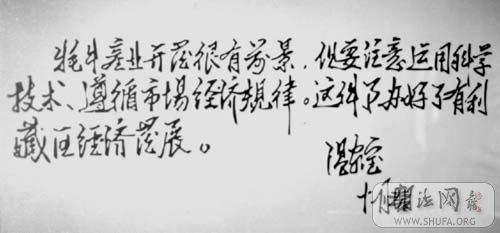 牦牛产业开发很有前景，但要注意运用科学
技术、遵循市场经济规律。这件事办好了有利
藏区经济发展。
温家宝
书法网
WWW.SHUFA.ORG